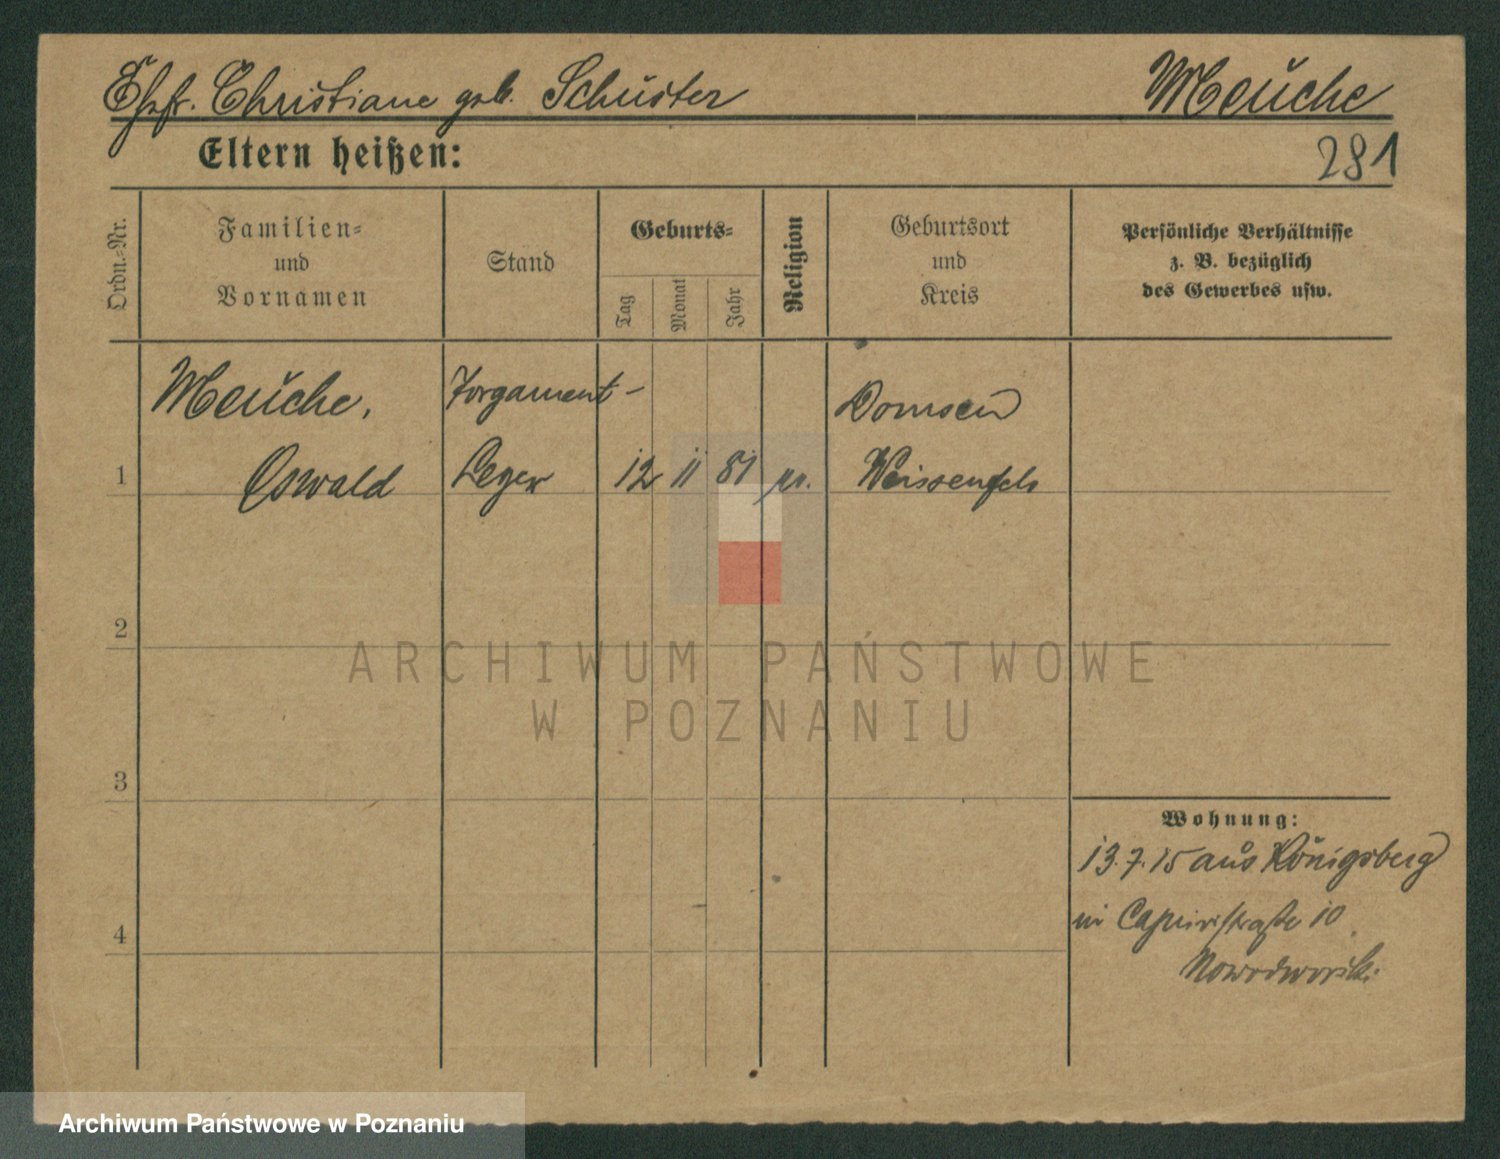 Ehefr. Christiane geb. Schuster Meuche
281
Eltern heißen:
Ordn.-Nr.
Familien-
und
Vornamen
Stand
Geburts-
Tag
Monat
Jahr
Religion
Geburtsort
und
Kreis
Persönliche Verhältnisse
z. B. bezüglich
des Gewerbes usw.
Meuche, Torgament- Domsen
1 Oswald Leger 12 11 81 pr. Weissenfels
2
ARCHIWUM PAŃSTWOWE
W POZNANIU
3
Wohnung:
13.7.15 aus Königsberg
in Caprivistraße 10
4
Nowodworski
Archiwum Państwowe w Poznaniu